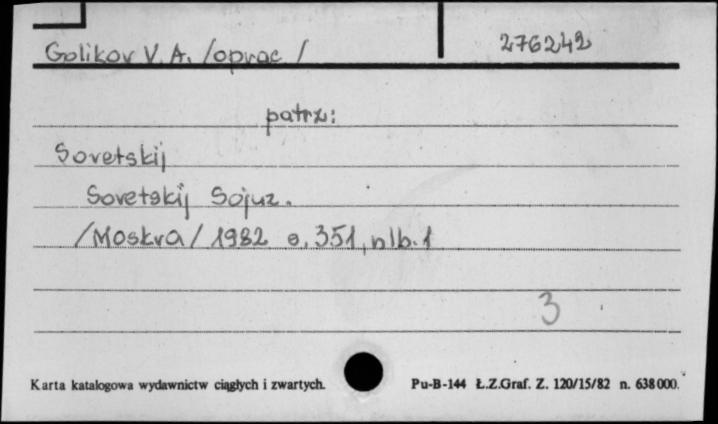 Golikov V. A. /oprac/ 276242
patrz:
Sovetskij
Sovetskij Sojuz.
/Moskva/ 1982 s. 351, nlb. 1
3
Karta katalogowa wydawnictw ciągłych i zwartych. Pu-B-144 Ł.Z.Graf. Z. 120/15/82 n. 638000.